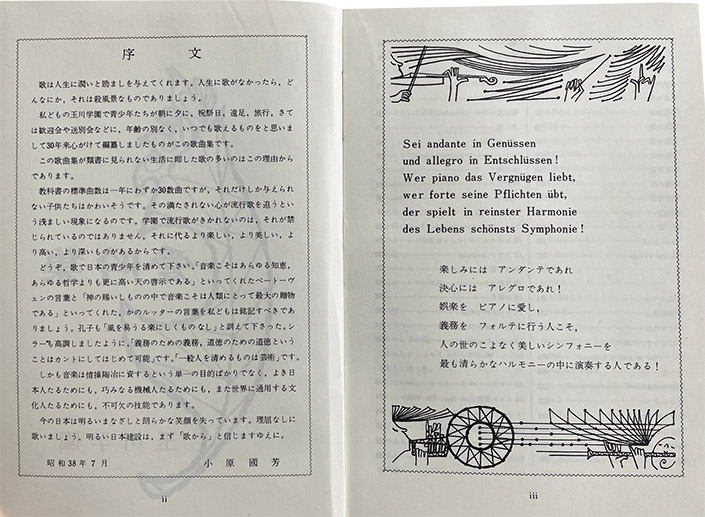 序文
歌は人生に潤いと励ましを与えてくれます。人生に歌がなかったら，ど
んなにか，それは殺風景なものでありましょう。
私どもの玉川学園で青少年たちが朝に夕に，祝祭日，遠足，旅行，さて
は歓迎会や送別会などに，年齢の別なく，いつでも歌えるものをと思いま
して30年来心がけて編纂しましたものがこの歌曲集です。
この歌曲集が類書に見られない生活に即した歌の多いのはこの理由から
であります。
教科書の標準曲数は一年にわずか30数曲ですが，それだけしか与えられ
ない子供たちはかわいそうです。その満たされない心が流行歌を追うとい
う浅ましい現象になるのです。学園で流行歌がきかれないのは，それが禁
じられているのではありません。それに代るより楽しい，より美しい，よ
り高い，より深いものがあるからです。
どうぞ，歌で日本の青少年を清めて下さい。「音楽こそはあらゆる知恵，
あらゆる哲学よりも更に高い天の啓示である」といってくれたベートーヴ
ェンの言葉と「神の賜いしものの中で音楽こそは人類にとって最大の贈物
である」といってくれた，かのルッターの言葉を私どもは銘記すべきであ
りましょう。孔子も「風を易うる楽にしくものなし」と訓えて下さった。シ
ラーも高調しましたように，「義務のための義務，道徳のための道徳という
ことはカントにしてはじめて可能」です。「一般人を清めるものは芸術」です。
しかも音楽は情操陶冶に資するという単一の目的ばかりでなく，よき日
本人たるためにも，巧みなる機械人たるためにも，また世界に通用する文
化人たるためにも，不可欠の技能であります。
今の日本は明るいまなざしと朗らかな笑顔を失っています。理屈なしに
歌いましょう。明るい日本建設は，まず「歌から」と信じますゆえに。
昭和38年7月　小原國芳
ii
Sei andante in Genüssen
und allegro in Entschlüssen!
Wer piano das Vergnügen liebt,
wer forte seine Pflichten übt,
der spielt in reinster Harmonie
des Lebens schönsts Symphonie!
楽しみには　アンダンテであれ
決心には　アレグロであれ！
娯楽を　ピアノに愛し，
義務を　フォルテに行う人こそ，
人の世のこよなく美しいシンフォニーを
最も清らかなハルモニーの中に演奏する人である！
iii